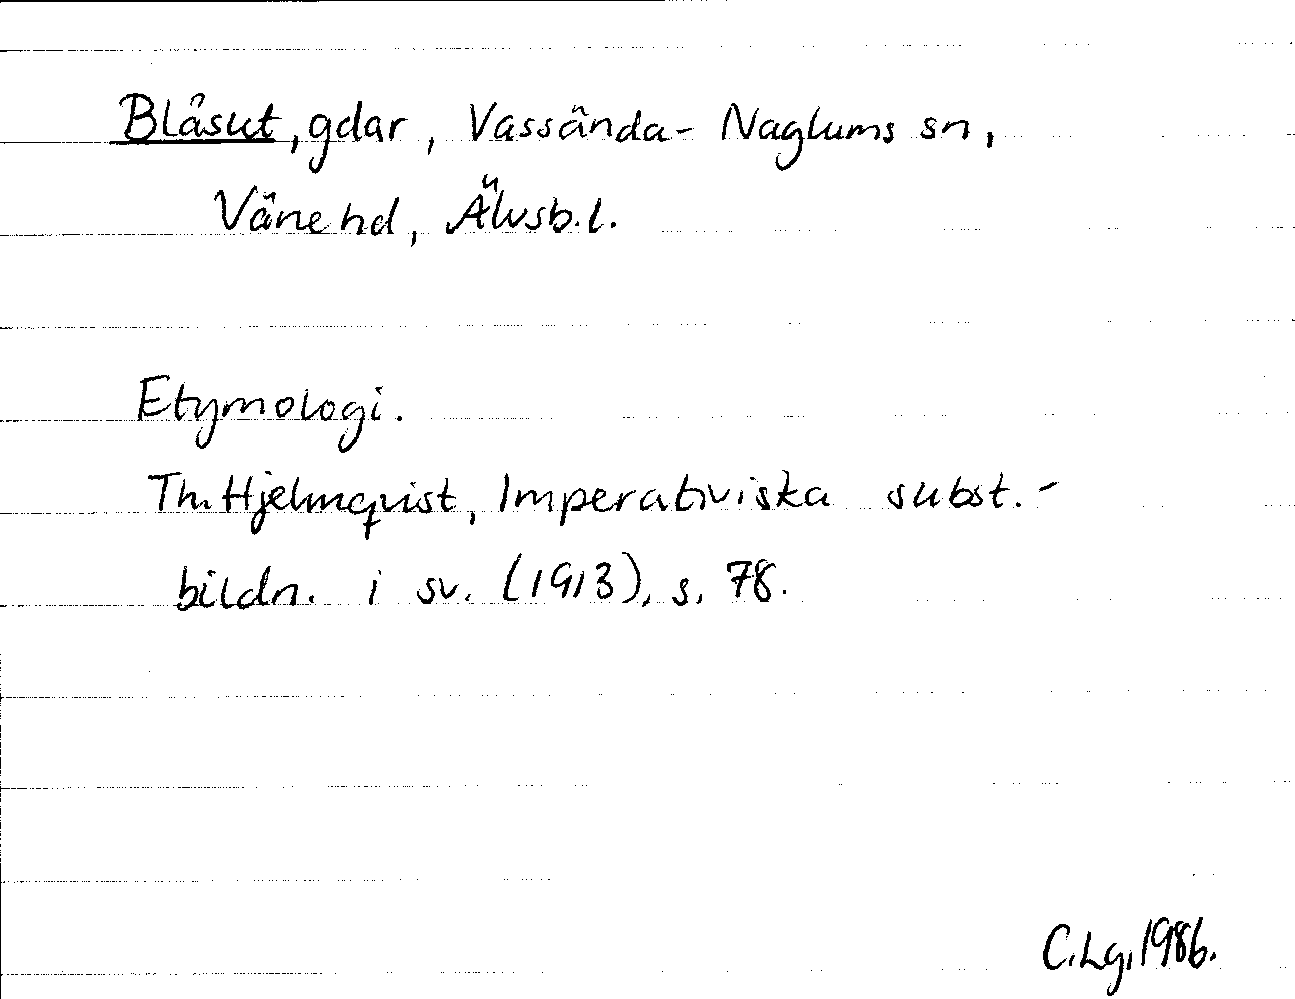 Blåsut, gdar, Vassända-Naglums sn,
Väne hd, Älvsb.l.
Etymologi.
Th. Hjelmqvist, Imperativiska subst.-
bildn. i sv. (1913), s. 78.
C.Lg. 1986.